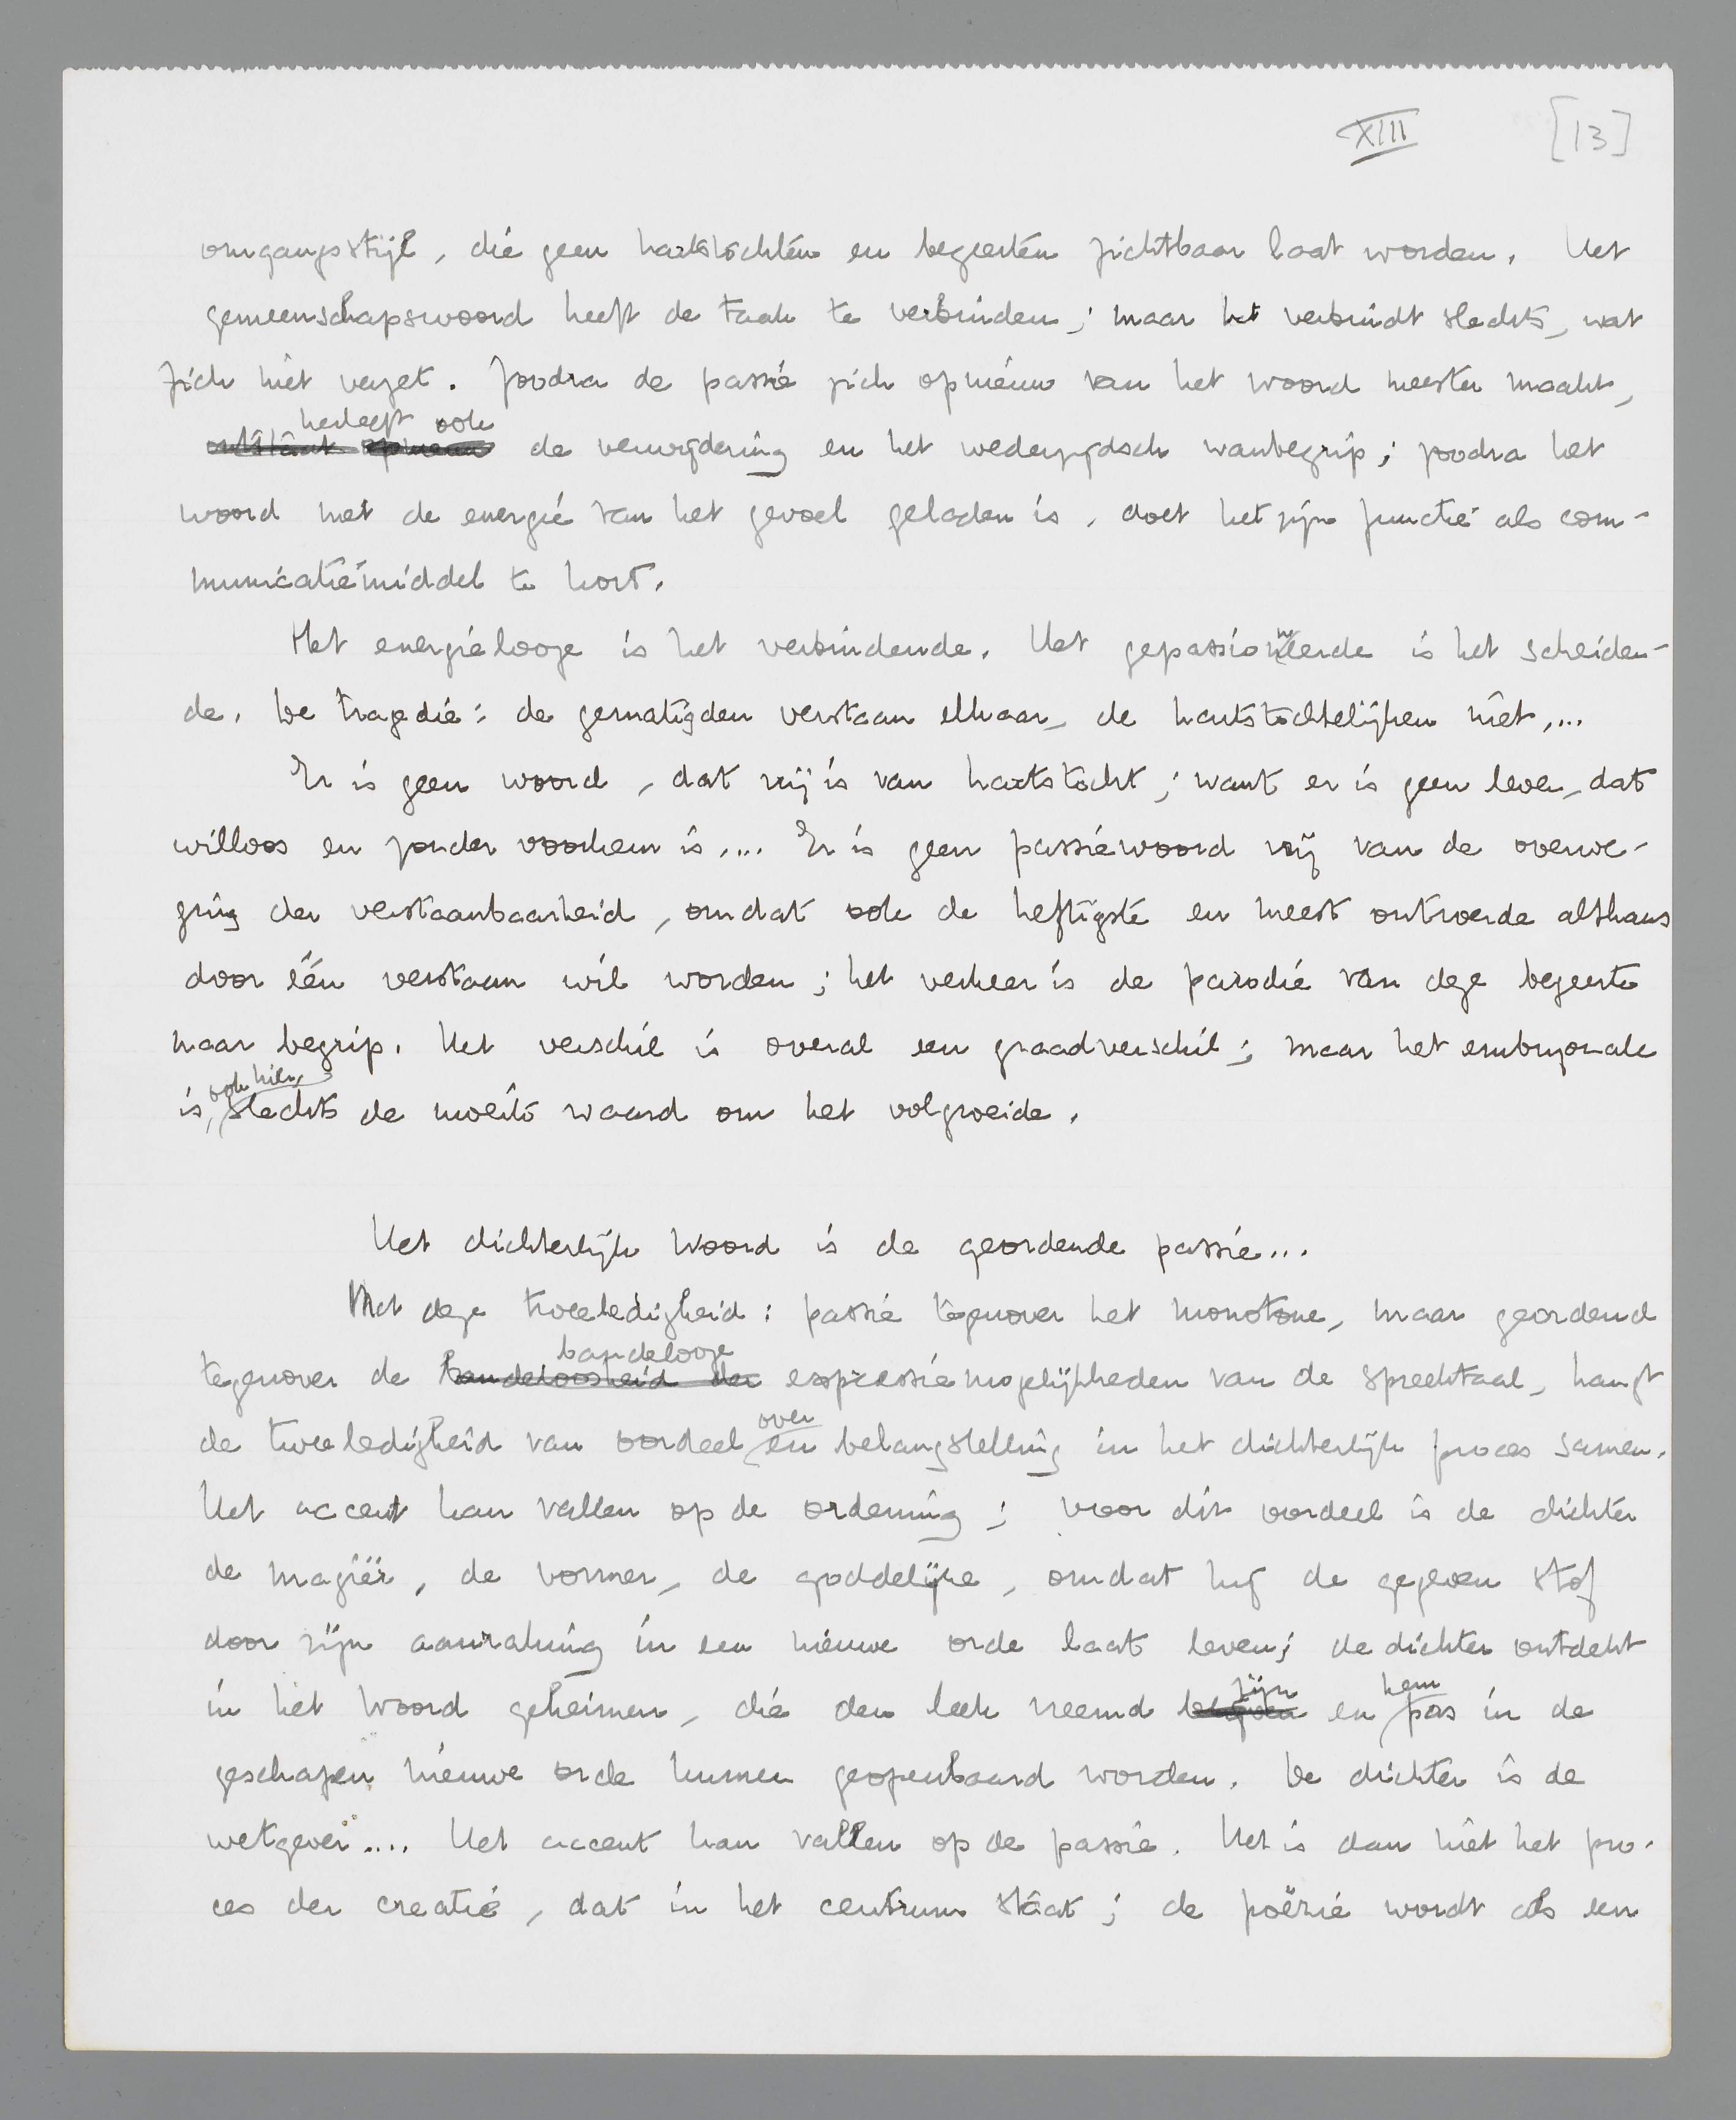 XIII [13]
omgangsstijl, die geen hartstochten en begeerten zichtbaar laat worden. Het
gemeenschapswoord heeft de taak te verbinden; maar het verbindt slechts, wat
zich niet verzet. Zoodra de passie zich opnieuw van het woord meester maakt,
herleeft ook
ontstaat opnieuw de verwijdering en het wederzijdsch wanbegrip; zoodra het
woord met de energie van het gevoel geladen is, doet het zijn functie als com-
municatiemiddel te kort.
Het energielooze is het verbindende. Het gepassioneerde is het scheiden-
de. De tragedie: de gematigden verstaan elkaar, de hartstochtelijken niet....
Er is geen woord, dat vrij is van hartstocht; want er is geen leven, dat
willoos en zonder voorkeur is.... Er is geen passiewoord vrij van de overwe-
ging der verstaanbaarheid, omdat ook de heftigste en meest ontroerde althans
door één verstaan wil worden; het verkeer is de parodie van deze begeerte
naar begrip. Het verschil is overal een graadverschil; maar het embryonale
ook hier,
is, slechts de moeite waard om het volgroeide.
Het dichterlijk woord is de geordende passie...
Met deze tweeledigheid: passie tegenover het monotone, maar geordend
bandelooze
tegenover de bandeloosheid der expressiemogelijkheden van de spreektaal, hangt
over
de tweeledigheid van oordeel en belangstelling in het dichterlijk proces samen.
Het accent kan vallen op de ordening; voor dit oordeel is de dichter
de magiër, de vormer, de goddelijke, omdat hij de gegeven stof
door zijn aanraking in een nieuwe orde laat leven; de dichter ontdekt
zijn hem
in het woord geheimen, die den leek vreemd blijven en pas in de
geschapen nieuwe orde kunnen geopenbaard worden. De dichter is de
wetgever.... Het accent kan vallen op de passie. Het is dan niet het pro-
ces der creatie, dat in het centrum staat; de poëzie wordt als een